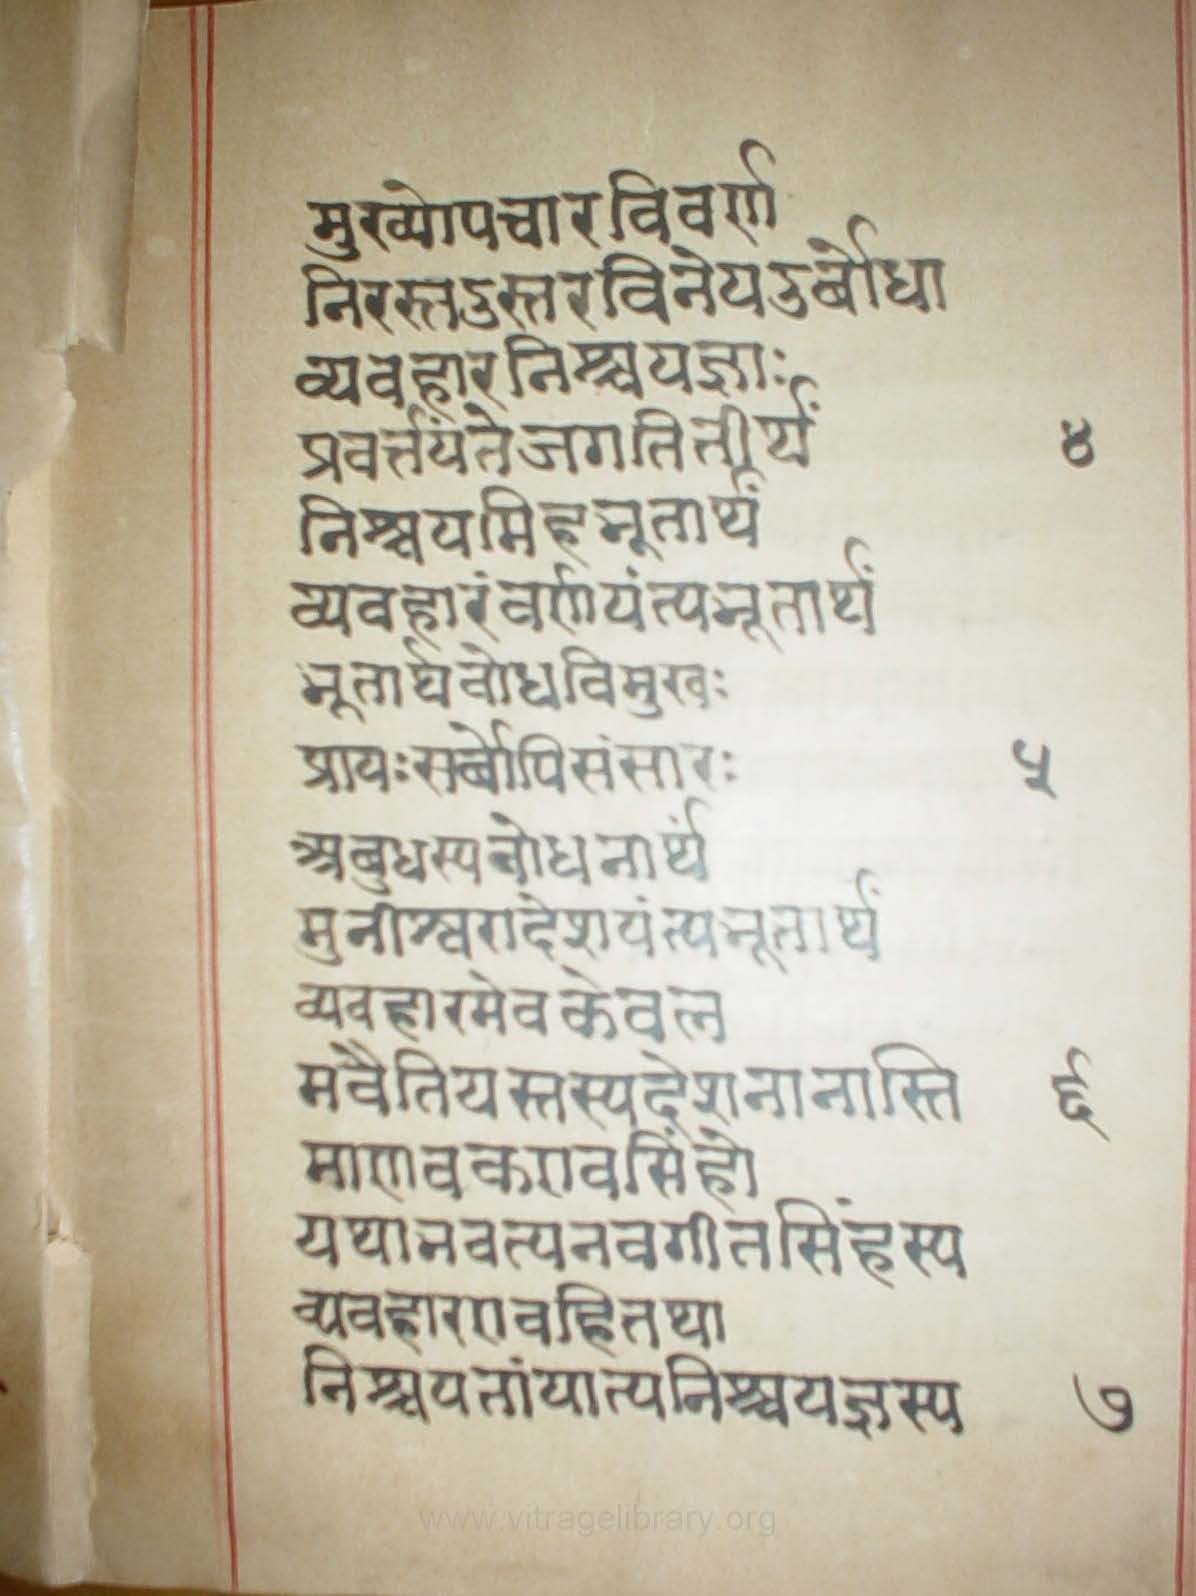 मुख्योपचारविवर्ण
निरस्तदुस्तरविनेयदुर्बोधा
व्यवहारनिश्चयज्ञाः
प्रवर्त्तयंते जगति तीर्थं ४
निश्चयमिह भूतार्थं
व्यवहारं वर्णयंत्यभूतार्थं
भूतार्थबोधविमुखः
प्रायः सर्बोपि संसारः ५
अबुधस्य बोधनार्थं
मुनीश्वरा देशयंत्यभूतार्थं
व्यवहारमेव केवल
मवैति यस्तस्य देशना नास्ति ६
माणवक एव सिंहो
यथा भवत्यनवगीतसिंहस्य
व्यवहार एव हि तथा
निश्चयतां यात्यनिश्चयज्ञस्य ७
www.vitragelibrary.org